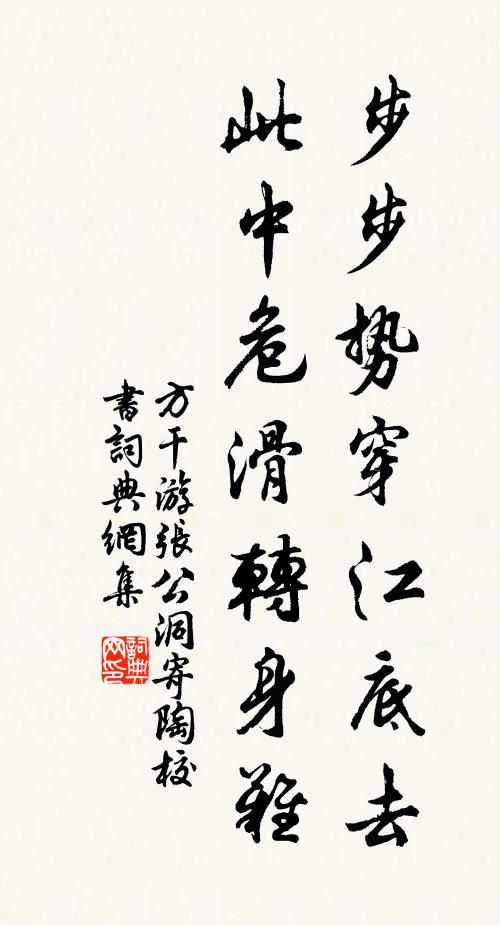 步步勢穿江底去
此中危滑轉身難
方干游張公洞寄陶校
書詞典網集
詞典
網印